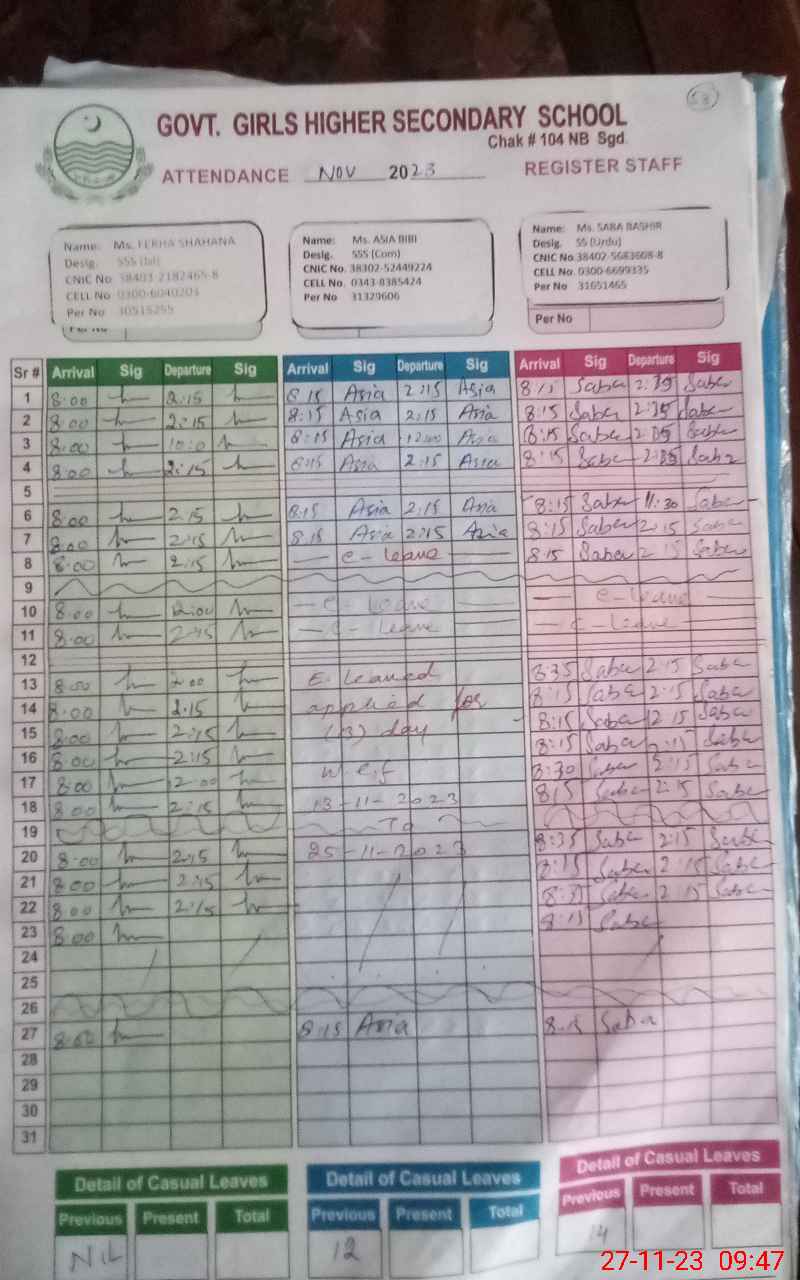 53
GOVT. GIRLS HIGHER SECONDARY SCHOOL
Chak # 104 NB Sgd.
ATTENDANCE NOV 2023 REGISTER STAFF
Name: Ms. FERHA SHAHANA
Desig. SSS
CNIC No 38403-2182465-8
CELL No 0300-6040203
Per No 30515255
Per No
Name: Ms. ASIA BIBI
Desig. SSS (Com)
CNIC No. 38302-52449224
CELL No. 0343-8385424
Per No 31329606
Name: Ms. SABA BASHIR
Desig. SS (Urdu)
CNIC No 38402-5683608-8
CELL No. 0300-6699335
Per No 31651465
Per No
Sr # Arrival Sig Departure Sig Arrival Sig Departure Sig Arrival Sig Departure Sig
1 8:00 2:15 8:15 Asia 2:15 Asia 8:15 Saba 2:15 Saba
2 8:00 2:15 8:15 Asia 2:15 Asia 8:15 Saba 2:15 Saba
3 8:00 10:0 8:15 Asia 12:00 Asia 8:15 Saba 2:15 Saba
4 8:00 2:15 8:15 Asia 2:15 Asia 8:15 Saba 2:15 Saba
5
6 8:00 2:15 8:15 Asia 2:15 Asia 8:15 Saba 11:30 Saba
7 8:00 2:15 8:15 Asia 2:15 Asia 8:15 Saba 2:15 Saba
8 8:00 2:15 — C - leave — 8:15 Saba 2:15 Saba
9
10 8:00 12:00 — C - leave — — C - leave —
11 8:00 2:15 — C - leave — — C - leave —
12
13 8:00 2:00 E. leaved 8:35 Saba 2:15 Saba
14 8:00 2:15 applied for 8:15 Saba 2:15 Saba
15 8:00 2:15 (13) day 8:15 Saba 2:15 Saba
16 8:00 2:15 8:15 Saba 2:15 Saba
17 8:00 12:00 w.e.f 8:30 Saba 2:15 Saba
18 8:00 2:15 13-11-2023 8:15 Saba 2:15 Saba
19 To
20 8:00 2:15 25-11-2023 8:35 Saba 2:15 Saba
21 8:00 2:15 8:15 Saba 2:15 Saba
22 8:00 2:15 8:35 Saba 2:15 Saba
23 8:00 8:15 Saba
24
25
26
27 8:00 8:15 Asia 8:15 Saba
28
29
30
31
Detail of Casual Leaves Detail of Casual Leaves Detail of Casual Leaves
Previous Present Total Previous Present Total Previous Present Total
NIL 12 14
27-11-23 09:47